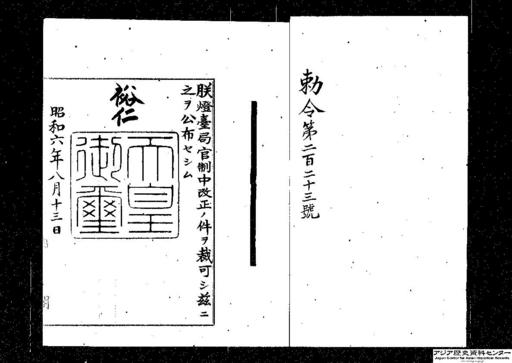 勅令第二百二十三號
朕燈臺局官制中改正ノ件ヲ裁可シ茲ニ
之ヲ公布セシム
裕仁
天皇
御璽
昭和六年八月十三日
アジア歴史資料センター
Japan Center for Asian Historical Records